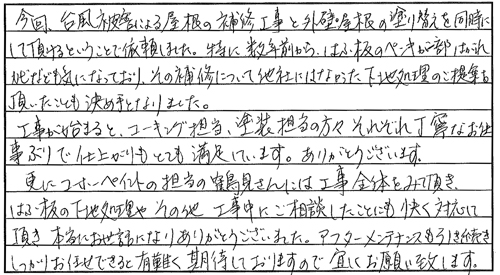 今回、台風被害による屋根の補修工事と外壁・屋根の塗り替えを同時に
して頂けるということで依頼しました。特に数年前から、はふ板のペンキが一部はがれ
なども気になっており、その補修について他社にはなかった下地処理のご提案も
頂いたことも決め手となりました。
工事が始まると、コーキング担当、塗装担当の方々それぞれ丁寧なお仕
事ぶりで仕上がりもとても満足しています。ありがとうございます。
更にユーホーペイントの担当の鶴見さんには工事全体をみて頂き、
はふ板の下地処理やその他工事中にご相談したことにも快く対応して
頂き本当にお世話になりありがとうございました。アフターメンテナンスも引き続き
しっかりお任せできると有難く期待しておりますので宜しくお願い致します。